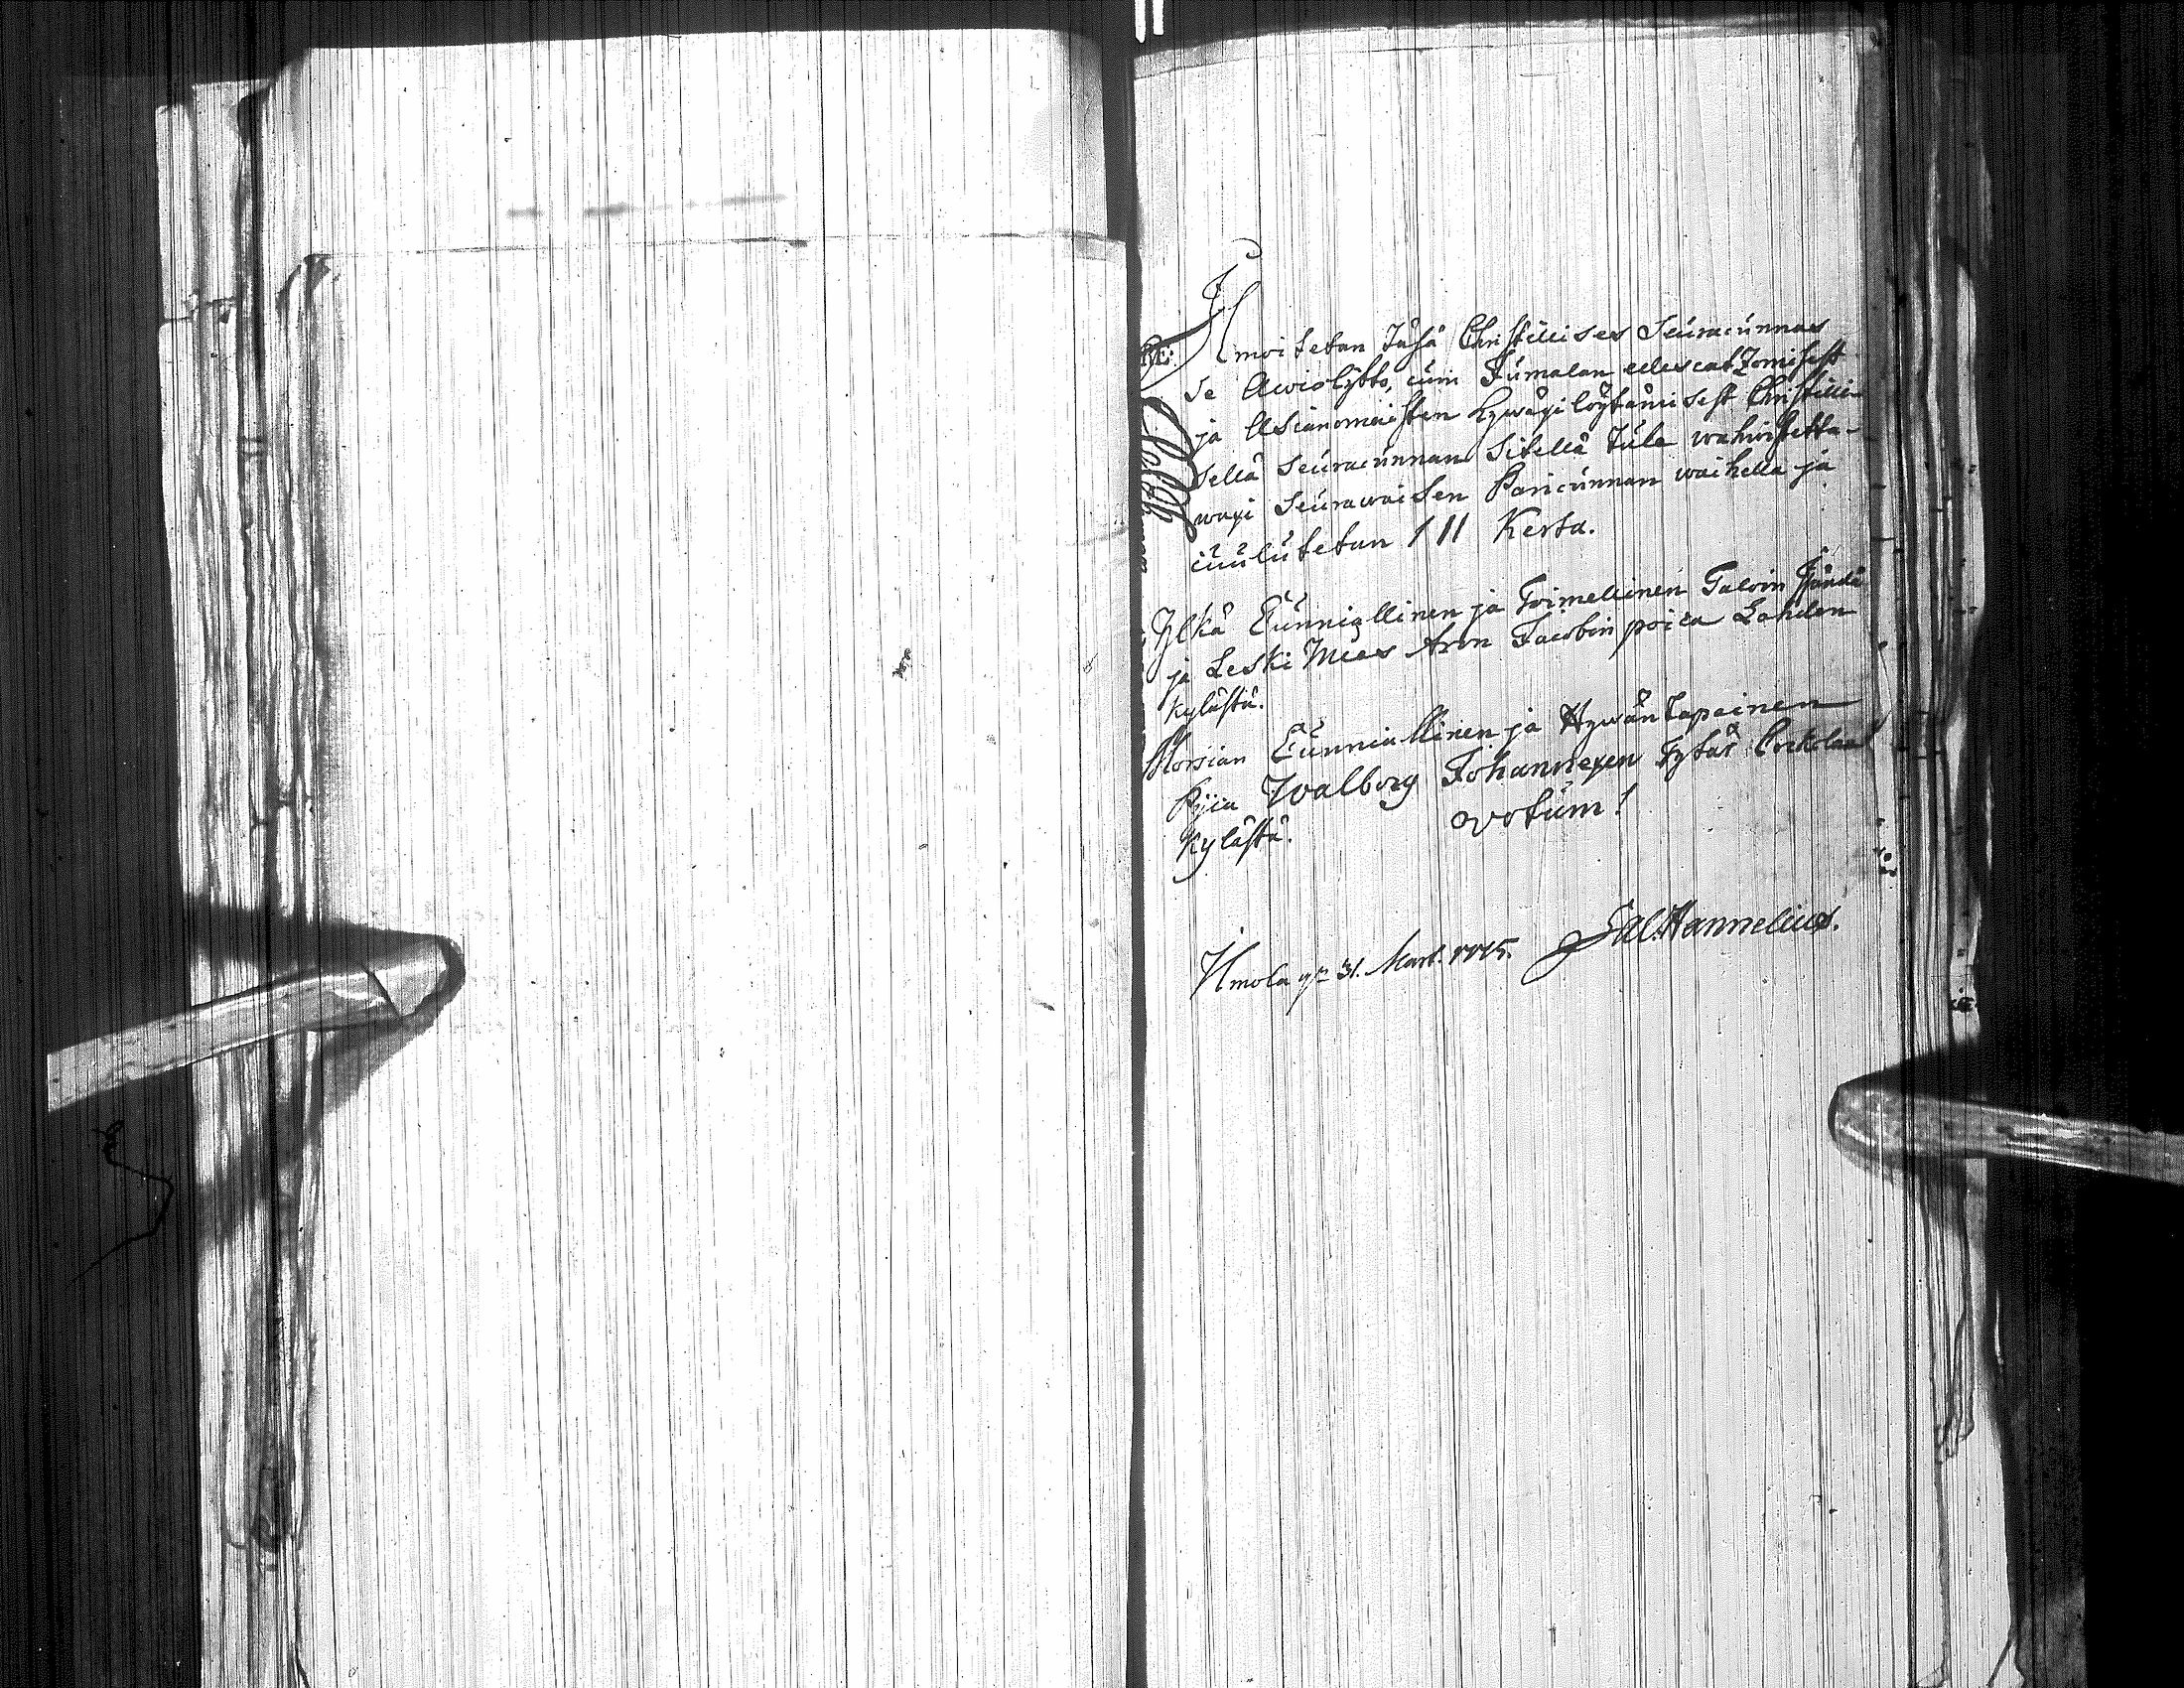 Ilmoitetan Täsä Christillises Seuracunnas
se Awiolijtto, cuin Jumalan edescatzomisest
ja Asianomaisten hywäxi löytämisest Christilli-
sellä Seuracunnan Sitellä tule wahwistetta-
waxi Seurawaisen Paricunnan waihella ja
cuulutetan III Kerta.
Ylkä Cunniallinen ja Toimellinen Taloin Isändä
ja Leski Mies Aron Jacobin poica Lahden
kylästä.
Morsian Cunniallinen ja Hywäntapainen
Pijca Walborg Johannexen Tytär
Kylästä. votum!
Ilmola 31. Mart. Hannelius.